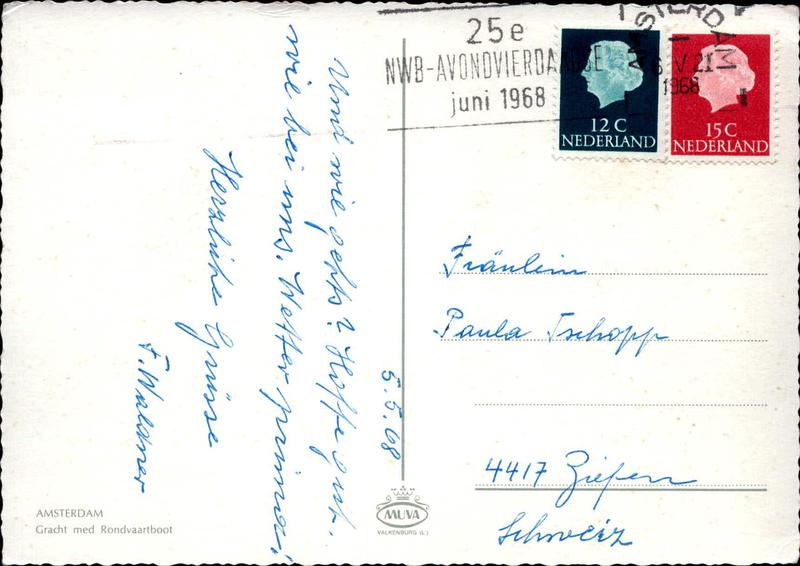 25e
NWB-AVONDVIERDAAGSE
juni 1968
AMSTERDAM
6 V 21
1968
12 C
NEDERLAND
15 C
NEDERLAND
5.5.68
Und wie gehts? Hoffe gut.
wie bei uns. Wetter prima!
Herzliche Grüsse
F. Waldner
Fräulein
Paula Tschopp
4417 Ziefen
Schweiz
AMSTERDAM
Gracht med Rondvaartboot
MUVA
VALKENBURG (L.)